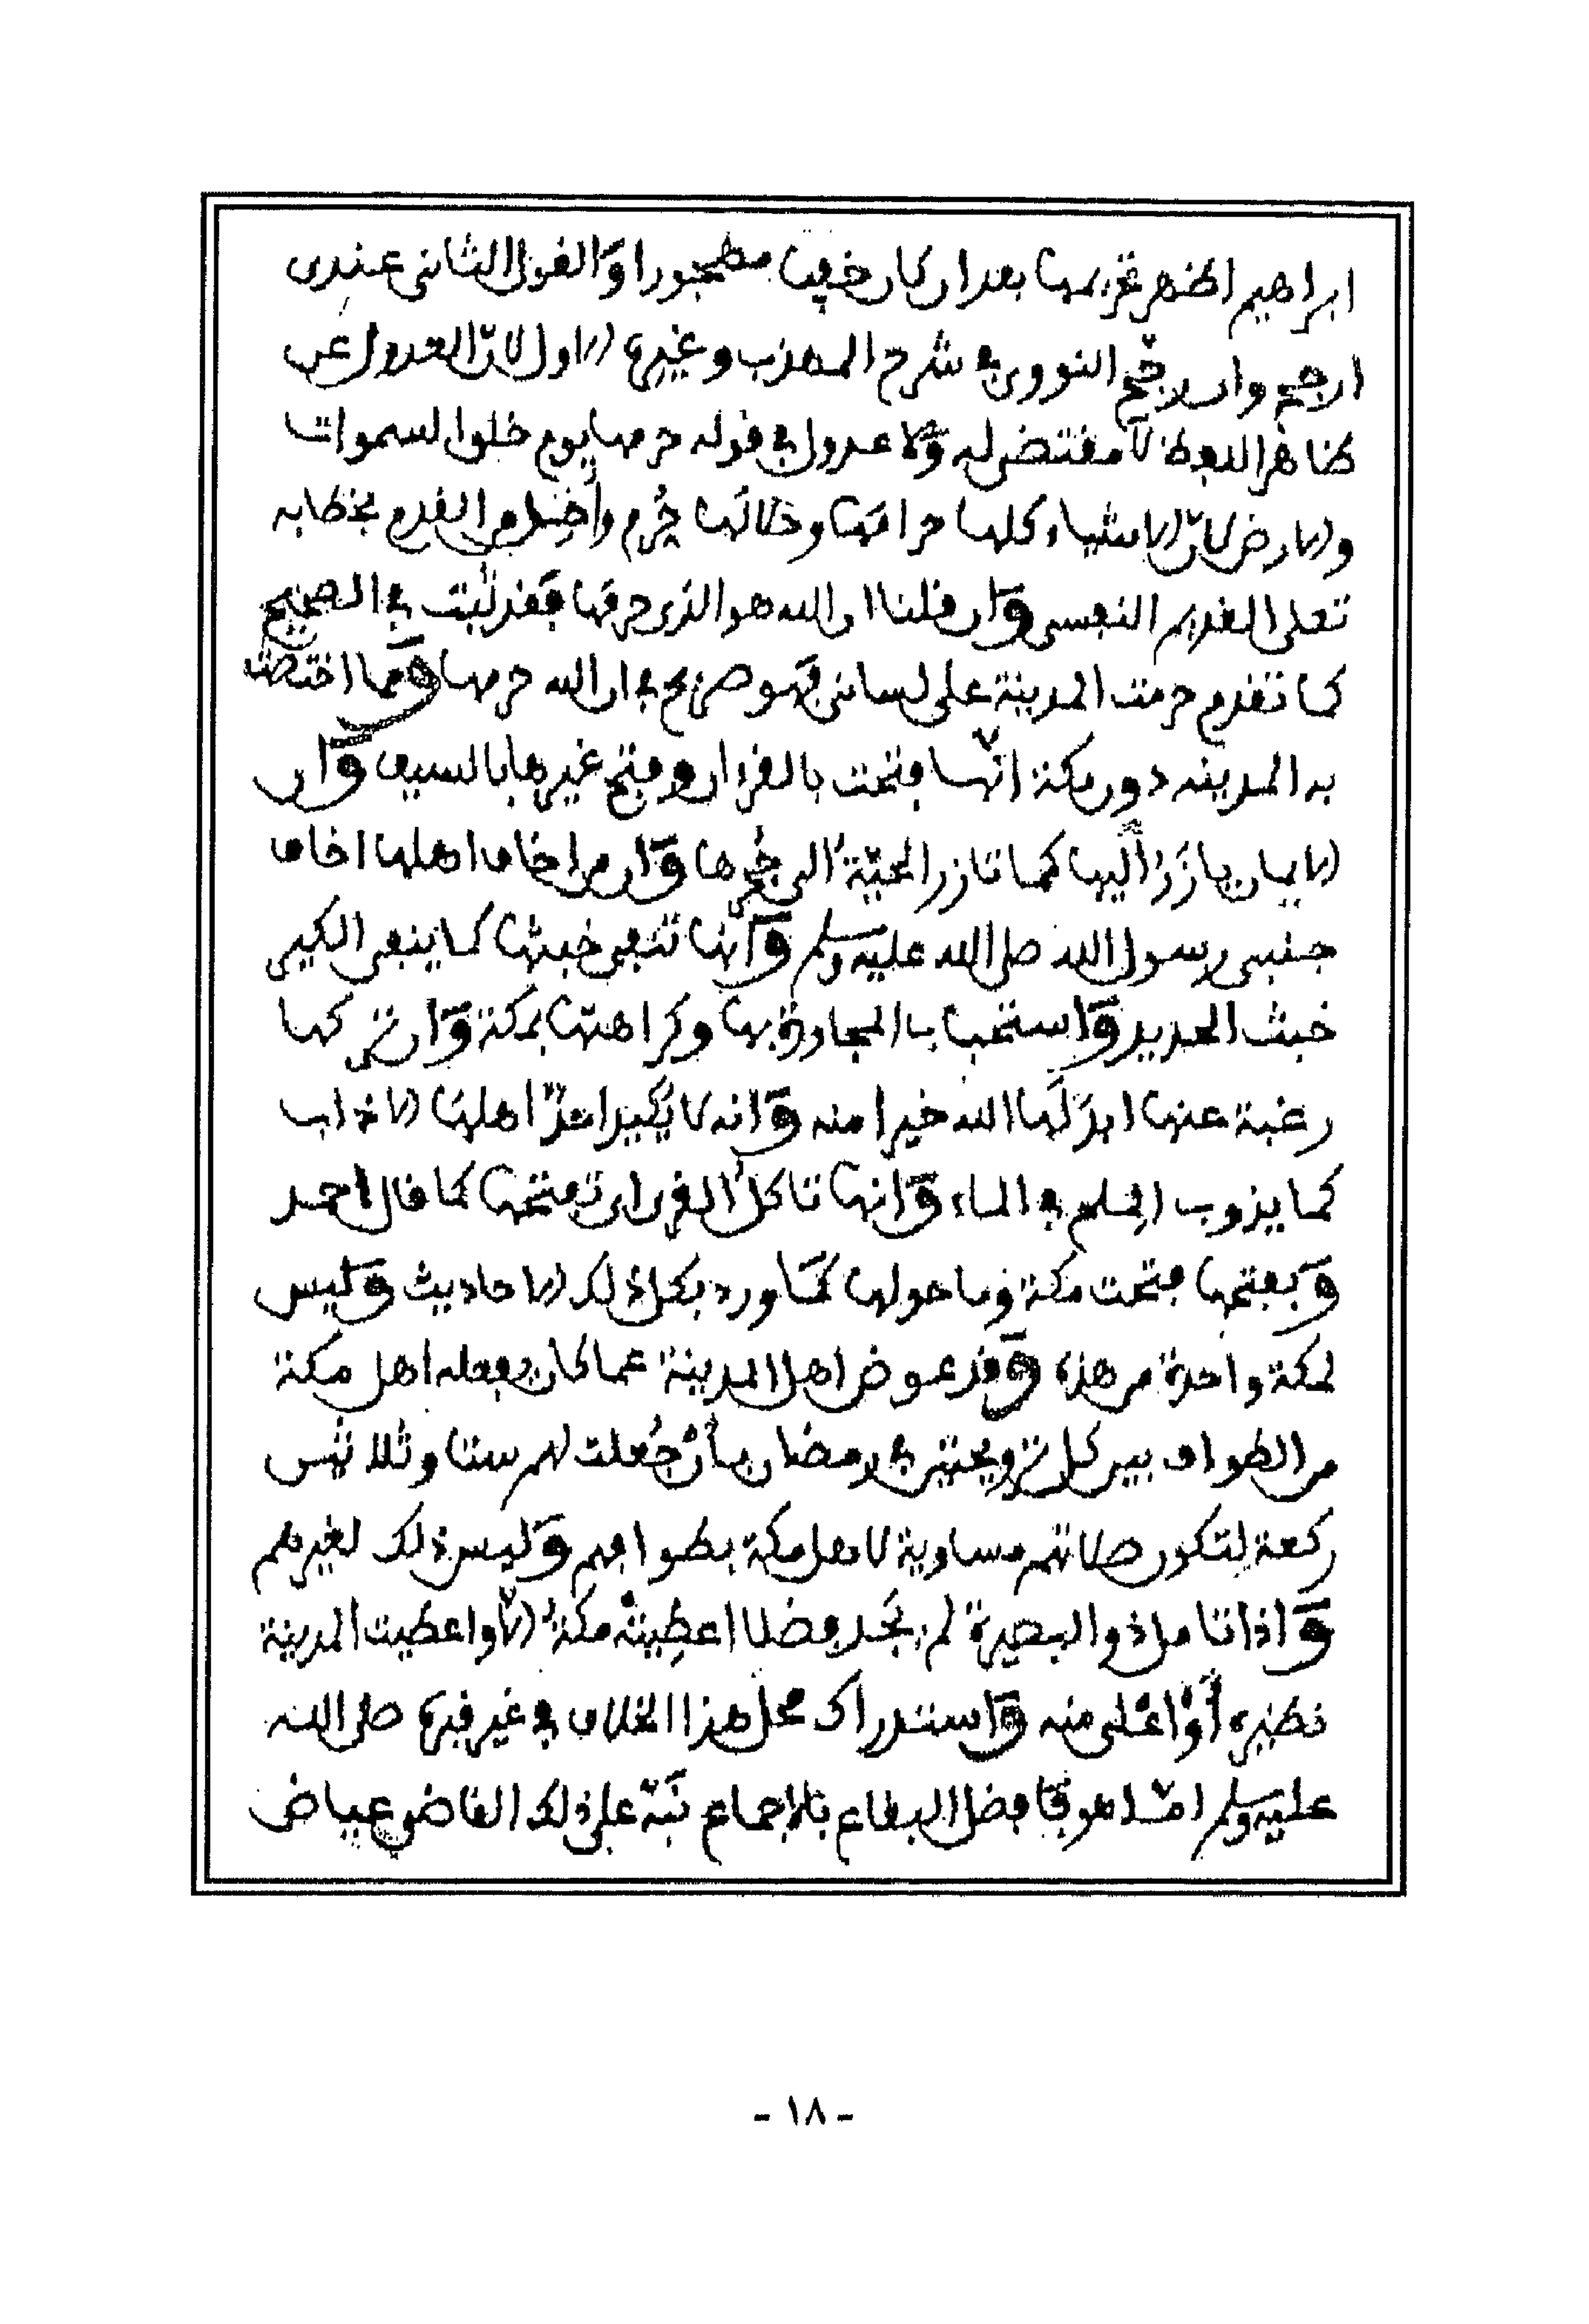 ابراهيم اظهر تحريمها بعد ان كان خفيا مهجورا والقول الثاني عندي
ارجح وان رجح النووي في شرح المهذب وغيره الاول لان العدول عن
ظاهر اللفظ لا مقتضى له ولا عدول في قوله حرمها يوم خلق السموات
والارض لان الاشياء كلها حرامها وحلالها حرم من القدم بخطابه
تعلى القديم النفسي وان قلنا ان الله هو الذي حرمها فقد ثبت في الصحيح
كما تقدم حرمت المدينة على لساني فهو صريح في ان الله حرمها ومما اختصت
به المدينه دون مكة انها فتحت بالقران وفتح غيرها بالسيف وان
الايمان يارز اليها كما تارز الحية الى جحرها وان من اخاف اهلها اخاف
جنبي رسول الله صلى الله عليه وسلم وانها تنفي خبثها كما ينفي الكير
خبث الحديد واستحباب المجاورة بها وكراهتها بمكة وان من تركها
رغبة عنها ابدلها الله خيرا منه وانه لا يكيد احد اهلها الا ذاب
كما يذوب الملح في الماء وانها تاكل القرى اي تفتحها كما قال احمد
وبفتحها فتحت مكة وما حولها كما ورد بكل ذلك الاحاديث وليس
لمكة واحدة من هذه وقد عوض اهل المدينة عما كان يفعله اهل مكة
من الطواف بين كل ترويحتين في رمضان بأن جعلت لهم ستا وثلاثين
ركعة لتكون صلاتهم مساوية لاهل مكة بطوافهم وليس ذلك لغيرهم
واذا تامل ذو البصيرة لم يجد فضلا اعطيته مكة الا واعطيت المدينة
نظيره أو اعلى منه واستدراك محل هذا الخلاف في غير قبره صلى الله
عليه وسلم اما هو فافضل البقاع بالاجماع نبه على ذلك القاضي عياض
- ١٨ -